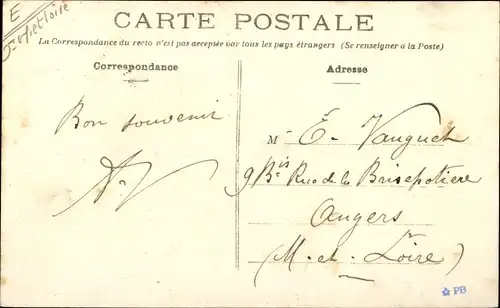 E
CARTE POSTALE
La Correspondance du recto n'est pas acceptée par tous les pays étrangers (Se renseigner a la Poste)
Correspondance
Adresse
Bon souvenir
M- E- Vauguet
9 Bis Rue de la Brisepotiere
Angers
(M.-et-Loire)
PB